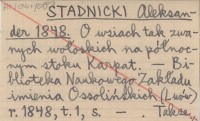 STADNICKI Aleksan-
der 1848. O wsiach tak zwa-
nych wołoskich na północ-
nym stoku Karpat. — Bi-
blioteka Naukowego Zakładu
imienia Ossolińskich (Lwów)
r. 1848, t. 1, s. — . Także